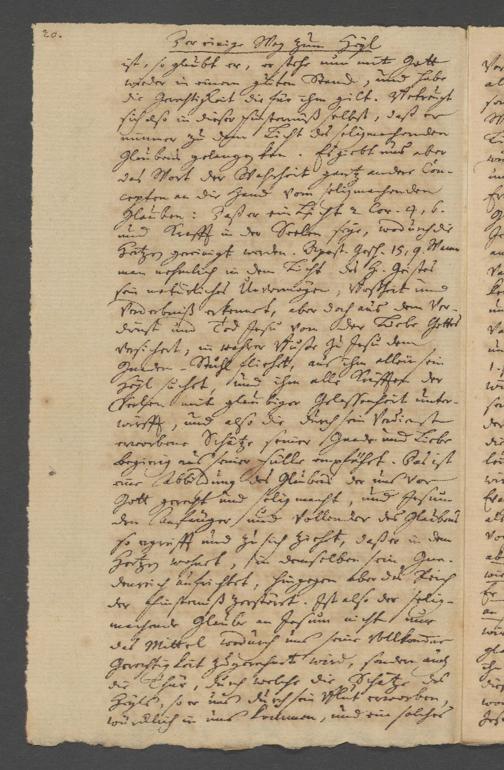 20.
Der einige Weg zum Heyl
ist, so glaubt er, er stehe nun mit Gott
wieder in einem guten Stande, und habe
die Gerechtigkeit die für ihm gilt. Betreugt
sich also in dieser Finsterniß selbst, daß er
nimmer zu dem Licht des seligmachenden
Glaubens gelangen kan. Es giebt uns aber
das Wort der Wahrheit gantz andere Con-
cepten an die Hand vom seligmachenden
Glauben: Daß er ein Licht 2 Cor. 4, 6.
und Krafft in der Seelen sey, wodurch die
Hertzen gereinigt werden. Apost. Gesch. 15, 9. Wenn
man nehmlich in dem Licht des H. Geistes
sein natürliches Unvermögen, Bosheit und
Verderbniß erkennet, aber doch aus dem Ver-
dienst und Tod Jesu von der Liebe Gottes
versichert, in wahrer Buße zu Jesu dem
Gnaden-Stuhl fliehet, aus ihm allein sein
Heyl suchet, und ihm alle Kräfften der
Seelen mit gläubiger Gelassenheit unter-
würfft, und also die durch sein Verdienst
erworbene Schätze seiner Gnade und Liebe
begierig aus seiner Fülle empfähet. Das ist
eine Abbildung des Glaubens der uns vor
Gott gerecht und selig macht, und Jesum
den Anfänger und Vollender des Glaubens
so ergreifft und zu sich ziehet, daß er in dem
Hertzen wohnet, in demselben sein Gna-
denreich aufrichtet, hingegen aber das Reich
der Finsterniß zerstöret. Ist also der selig-
machende Glaube an Jesum nicht nur
das Mittel wodurch uns seine vollkomne
Gerechtigkeit zugerechnet wird, sondern auch
die Thür, durch welche die Schätze des
Heyls, so er uns durch sein Blut erworben,
würcklich in uns kommen, und ein solches